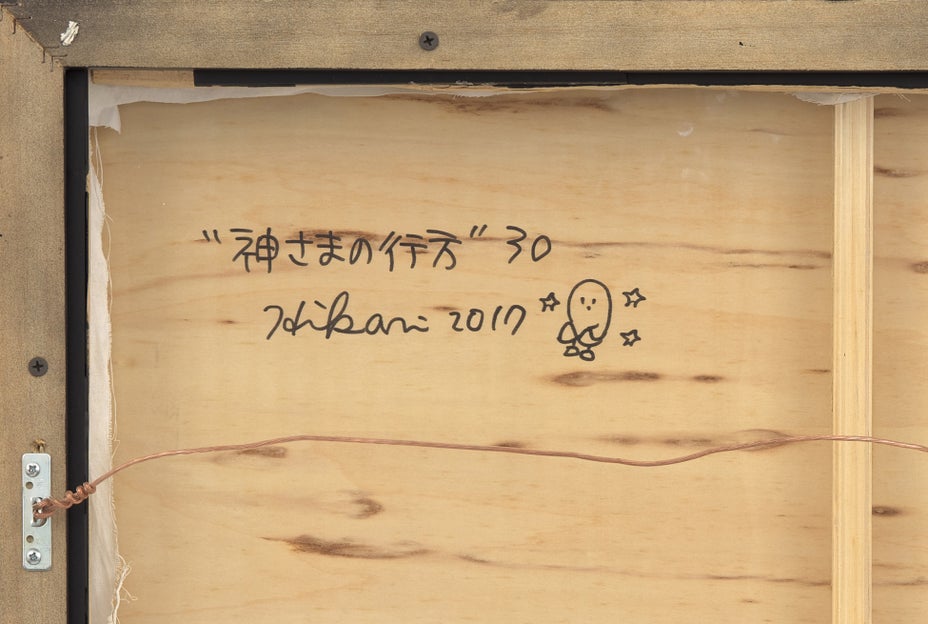 "神さまの行方" 30
Hikari 2017